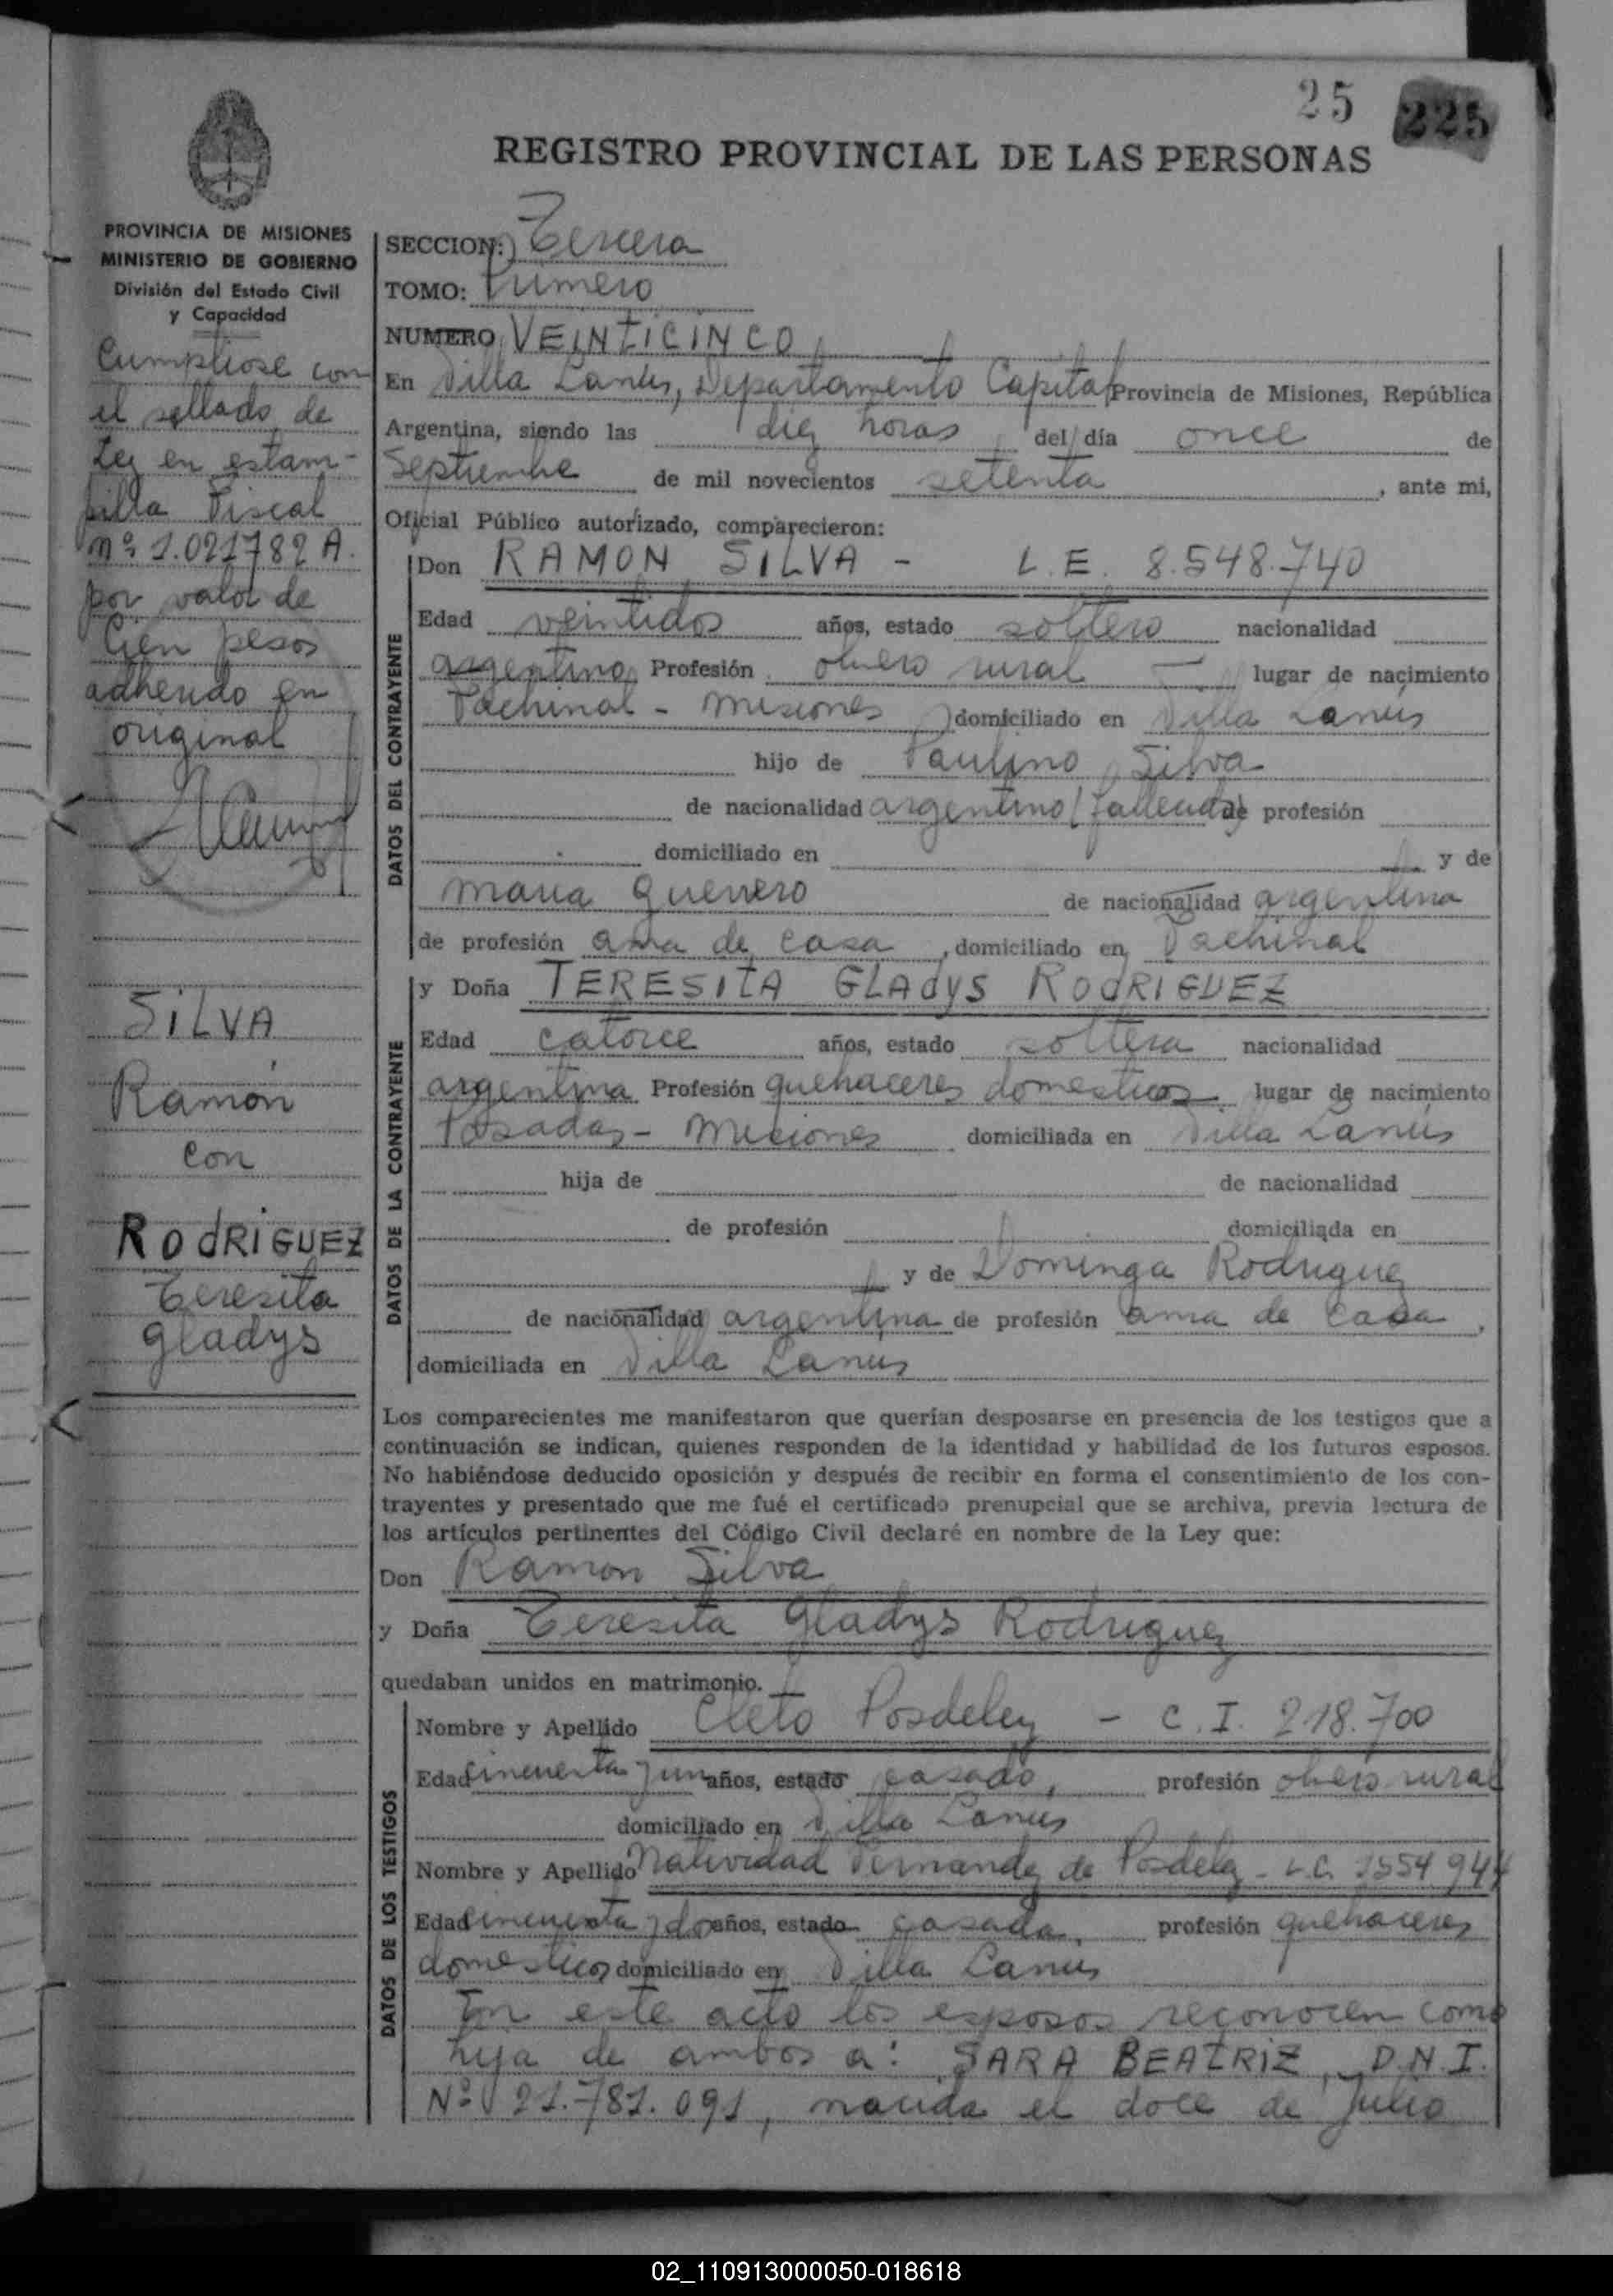 25 225
REGISTRO PROVINCIAL DE LAS PERSONAS
PROVINCIA DE MISIONES
MINISTERIO DE GOBIERNO
División del Estado Civil
y Capacidad
Cumpliose con
el sellado de
Ley en estam-
pilla Fiscal
Nº 1.021782 A.
por valor de
Cien pesos
adherido en
original
SILVA
Ramón
con
RODRIGUEZ
Teresita
Gladys
SECCION: Tercera
TOMO: Primero
NUMERO VEINTICINCO
En Villa Lanús, Departamento Capital Provincia de Misiones, República
Argentina, siendo las diez horas del día once de
Septiembre de mil novecientos setenta, ante mi,
Oficial Público autorizado, comparecieron:
DATOS DEL CONTRAYENTE
Don RAMON SILVA - L.E. 8.548.740
Edad veintidos años, estado soltero nacionalidad
argentino Profesión obrero rural lugar de nacimiento
Pachinal - Misiones domiciliado en Villa Lanús
hijo de Paulino Silva
de nacionalidad argentino (fallecido) de profesión
domiciliado en y de
Maria Guerrero de nacionalidad argentina
de profesión ama de casa, domiciliado en Pachinal
DATOS DE LA CONTRAYENTE
y Doña TERESITA GLADYS RODRIGUEZ
Edad catorce años, estado soltera nacionalidad
argentina Profesión quehaceres domesticos lugar de nacimiento
Posadas - Misiones domiciliada en Villa Lanús
hija de de nacionalidad
de profesión domiciliada en
y de Dominga Rodriguez
de nacionalidad argentina de profesión ama de casa,
domiciliada en Villa Lanus
Los comparecientes me manifestaron que querían desposarse en presencia de los testigos que a
continuación se indican, quienes responden de la identidad y habilidad de los futuros esposos.
No habiéndose deducido oposición y después de recibir en forma el consentimiento de los con-
trayentes y presentado que me fué el certificado prenupcial que se archiva, previa lectura de
los artículos pertinentes del Código Civil declaré en nombre de la Ley que:
Don Ramon Silva
y Doña Teresita Gladys Rodriguez
quedaban unidos en matrimonio.
DATOS DE LOS TESTIGOS
Nombre y Apellido Cleto Posdeley - C.I. 218.700
Edad cincuenta y un años, estado casado, profesión obrero rural
domiciliado en Villa Lanús
Nombre y Apellido Natividad Fernandez de Posdeley - L.C.
Edad cincuenta y dos años, estado casada, profesión quehaceres
domesticos domiciliado en Villa Lanus
En este acto los esposos reconocen como
hija de ambos a: SARA BEATRIZ, D.N.I.
Nº 21.781.091, nacida el doce de Julio
02_110913000050-018618